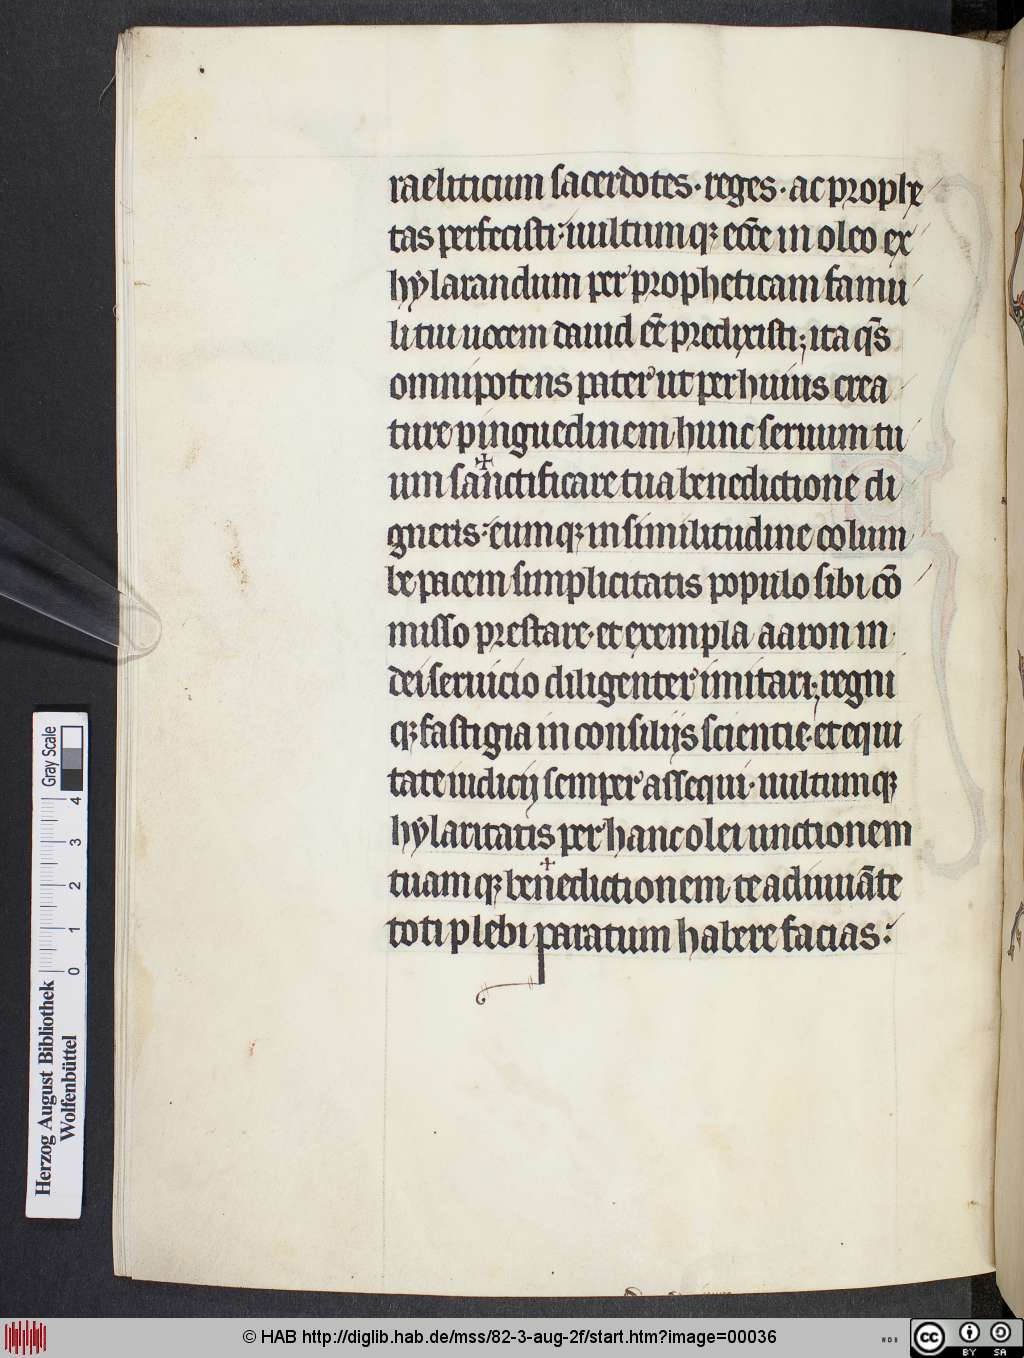 raeliticum sacerdotes · reges · ac prophe
tas perfecisti : uultumqꝫ eccl̄e in oleo ex
hylarandum per propheticam famu
li tui uocem dauid eē predixisti ; ita qs̄
omnipotens pater ut per huius crea
ture pinguedinem hunc seruum tu
um sa✠nctificare tua benedictione di
gneris : eumqꝫ in similitudine colum
be pacem simplicitatis populo sibi cō
misso prestare · et exempla aaron in
dei seruicio diligenter imitari ; regni
qꝫ fastigia in consilijs scientie · et equi
tate iudicij semper assequi · uultumqꝫ
hylaritatis per hanc olei unctionem
tuamqꝫ ben✠edictionem te adiuuāte
toti plebi paratum habere facias :
Herzog August Bibliothek
Wolfenbüttel
0 1 2 3 4
Gray Scale
© HAB http://diglib.hab.de/mss/82-3-aug-2f/start.htm?image=00036
cc BY SA